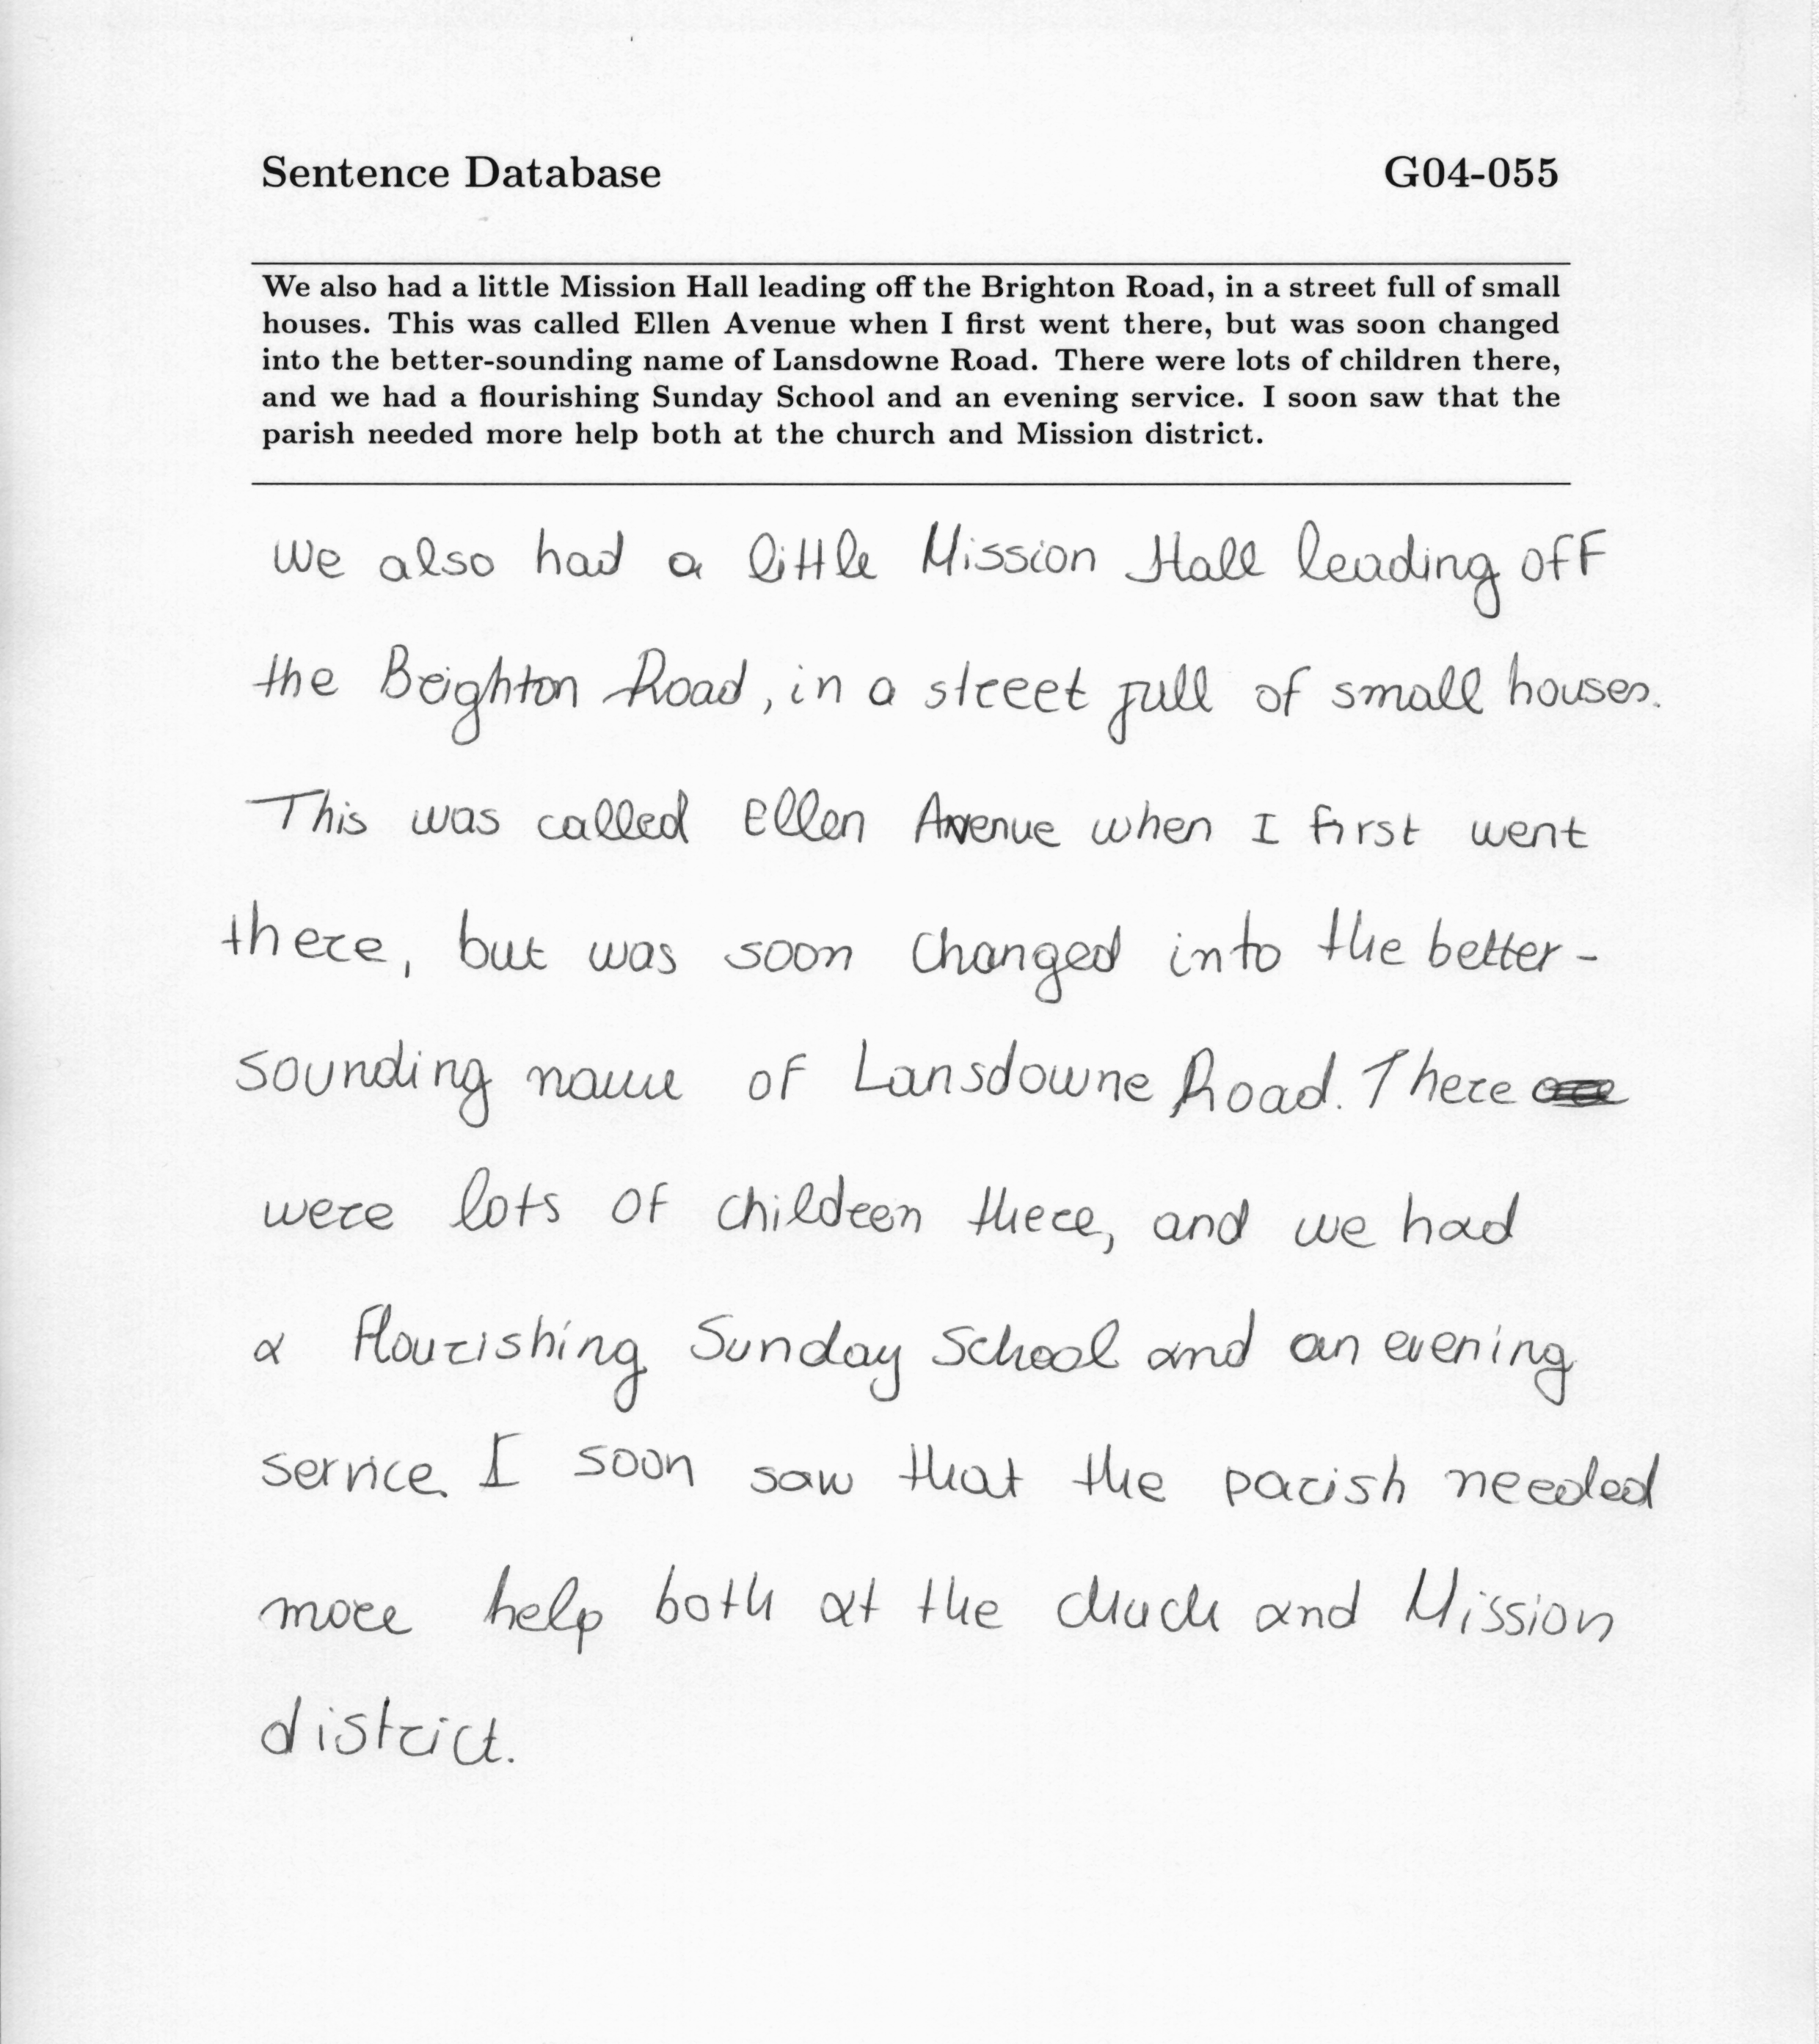 Sentence Database G04-055
We also had a little Mission Hall leading off the Brighton Road, in a street full of small
houses. This was called Ellen Avenue when I first went there, but was soon changed
into the better-sounding name of Lansdowne Road. There were lots of children there,
and we had a flourishing Sunday School and an evening service. I soon saw that the
parish needed more help both at the church and Mission district.
We also had a little Mission Hall leading off
the Brighton Road, in a street full of small houses.
This was called Ellen Avenue when I first went
there, but was soon changed into the better-
sounding name of Lansdowne Road. There
were lots of children there, and we had
a flourishing Sunday School and an evening
service. I soon saw that the parish needed
more help both at the chuch and Mission
district.